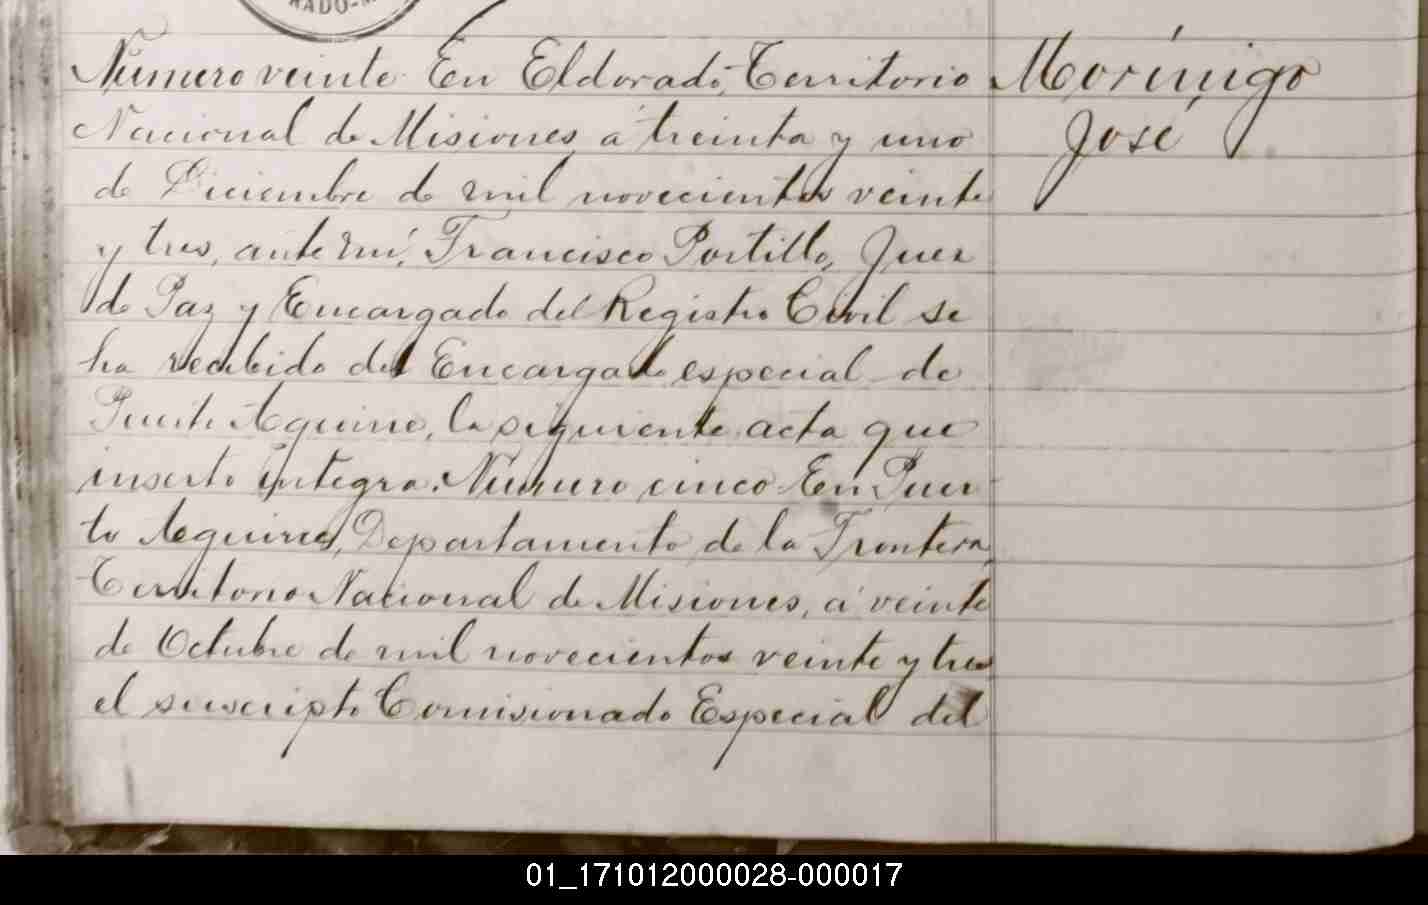 RADO-M
Número veinte. En Eldorado, Territorio
Nacional de Misiones, á treinta y uno
de Diciembre de mil novecientos veinte
y tres, ante mí, Francisco Portillo, Juez
de Paz y Encargado del Registro Civil se
ha recibido del Encargado especial de
Puerto Aguirre, la siguiente acta que
inserto íntegra. Número cinco En Puer-
to Aguirre, Departamento de la Frontera,
Territorio Nacional de Misiones, á veinte
de Octubre de mil novecientos veinte y tres
el suscripto Comisionado Especial del
Morínigo
José
01_171012000028-000017